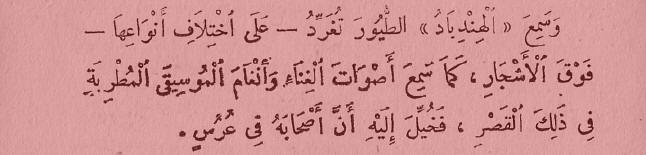 وَسَمِعَ « ٱلْهِنْدِبَادُ » ٱلطُّيُورَ تُغَرِّدُ — عَلَى ٱخْتِلَافِ أَنْوَاعِهَا —
فَوْقَ ٱلْأَشْجَارِ ، كَمَا سَمِعَ أَصْوَاتَ ٱلْغِنَاءِ وَأَنْغَامَ ٱلْمُوسِيقَى ٱلْمُطْرِبَةِ
فِى ذَلِكَ ٱلْقَصْرِ ، فَخُيِّلَ إِلَيْهِ أَنَّ أَصْحَابَهُ فِى عُرْسٍ .